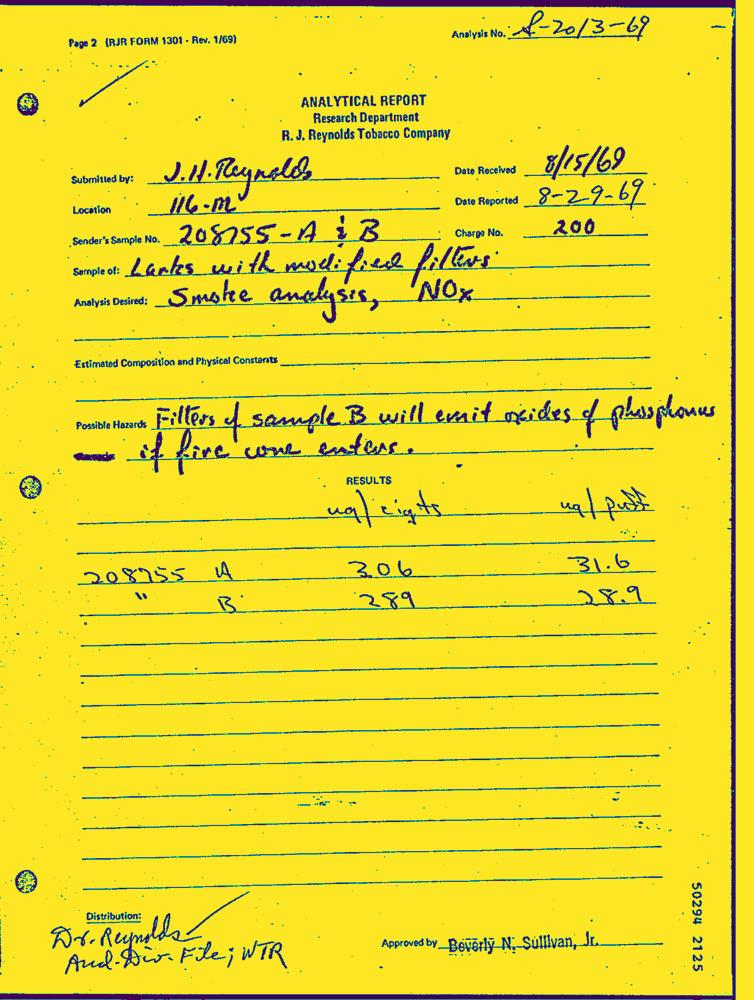 Page 2 (RJR FORM 1301 - Rev. 1/69)
Analysis No. A-2013-69
ANALYTICAL REPORT
Research Department
R. J. Reynolds Tobacco Company
Submitted by: J.H. Reynolds
Date Received 8/15/69
Location 116-M
Date Reported 8-29-69
Sender's Sample No. 208755-A & B
Charge No. 200
Sample of: Larks with modified filters
Analysis Desired: Smoke analysis, NOx
Estimated Composition and Physical Constants
Possible Hazards Filters of sample B will emit oxides of phosphorus
if fire cone enters.
RESULTS
ug/cigts ug/puff
208755 A 306 31.6
" B 289 28.9
Distribution:
Dr. Reynolds
Anal. Div. File; WTR
Approved by Beverly N. Sullivan, Jr.
50294 2125